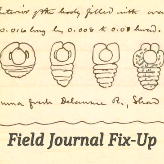 Interior of the body filled with ova
0.016 long by 0.006 to 0.08 broad.
from fresh Delaware R., Shad
Field Journal Fix-Up